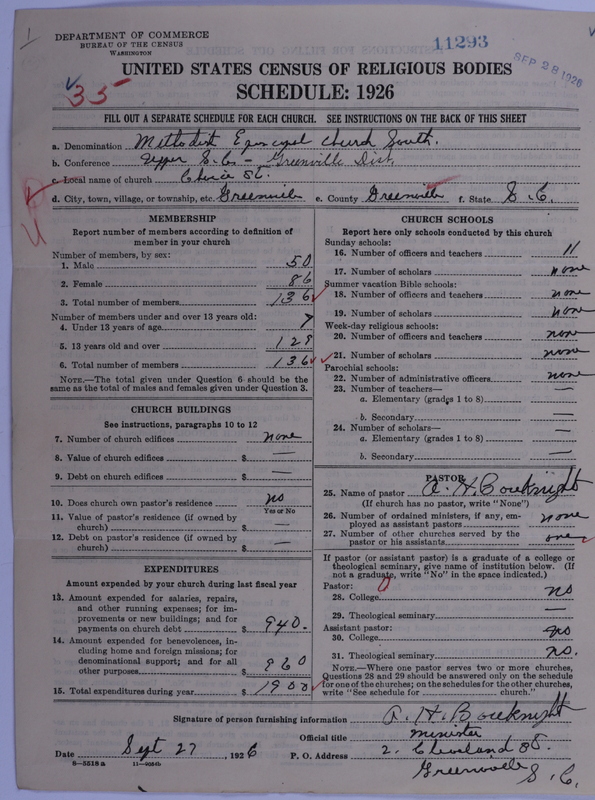 1
DEPARTMENT OF COMMERCE
BUREAU OF THE CENSUS
WASHINGTON
11293
SEP 28 1926
UNITED STATES CENSUS OF RELIGIOUS BODIES
SCHEDULE: 1926
35
FILL OUT A SEPARATE SCHEDULE FOR EACH CHURCH. SEE INSTRUCTIONS ON THE BACK OF THIS SHEET
a. Denomination Methodist Episcopal Church South.
b. Conference Upper S.C. - Greenville Dist.
c. Local name of church Choice St.
d. City, town, village, or township, etc. Greenville e. County Greenville f. State S.C.
MEMBERSHIP
Report number of members according to definition of
member in your church
Number of members, by sex:
1. Male 50
2. Female 86
3. Total number of members 136
Number of members under and over 13 years old:
4. Under 13 years of age 7
5. 13 years old and over 129
6. Total number of members 136
NOTE.—The total given under Question 6 should be
same as the total of males and females given under Question 3.
CHURCH BUILDINGS
See instructions, paragraphs 10 to 12
7. Number of church edifices none
8. Value of church edifices $ —
9. Debt on church edifices $ —
10. Does church own pastor's residence no
Yes or No
11. Value of pastor's residence (if owned by
church) $ —
12. Debt on pastor's residence (if owned by
church) $ —
EXPENDITURES
Amount expended by your church during last fiscal year
13. Amount expended for salaries, repairs,
and other running expenses; for im-
provements or new buildings; and for
payments on church debt $ 940.
14. Amount expended for benevolences, in-
cluding home and foreign missions; for
denominational support; and for all
other purposes $ 960
15. Total expenditures during year $ 1900
CHURCH SCHOOLS
Report here only schools conducted by this church
Sunday schools:
16. Number of officers and teachers 11
17. Number of scholars none
Summer vacation Bible schools:
18. Number of officers and teachers none
19. Number of scholars none
Week-day religious schools:
20. Number of officers and teachers none
21. Number of scholars none
Parochial schools:
22. Number of administrative officers none
23. Number of teachers—
a. Elementary (grades 1 to 8) —
b. Secondary —
24. Number of scholars—
a. Elementary (grades 1 to 8) —
b. Secondary —
PASTOR
25. Name of pastor A. H. Bouknight
(If church has no pastor, write "None")
26. Number of ordained ministers, if any, em-
ployed as assistant pastors none
27. Number of other churches served by the
pastor or his assistants one
If pastor (or assistant pastor) is a graduate of a college or
theological seminary, give name of institution below. (If
not a graduate, write "No" in the space indicated.)
Pastor:
28. College no
29. Theological seminary —
Assistant pastor:
30. College no
31. Theological seminary no.
NOTE.—Where one pastor serves two or more churches,
Questions 28 and 29 should be answered only on the schedule
for one of the churches; on the schedules for the other churches,
write "See schedule for church."
Signature of person furnishing information A. H. Bouknight
Official title Minister
Date Sept 27, 1926 P. O. Address 2. Cleveland St.
Greenville S.C.
8-5518 a 11-9054b